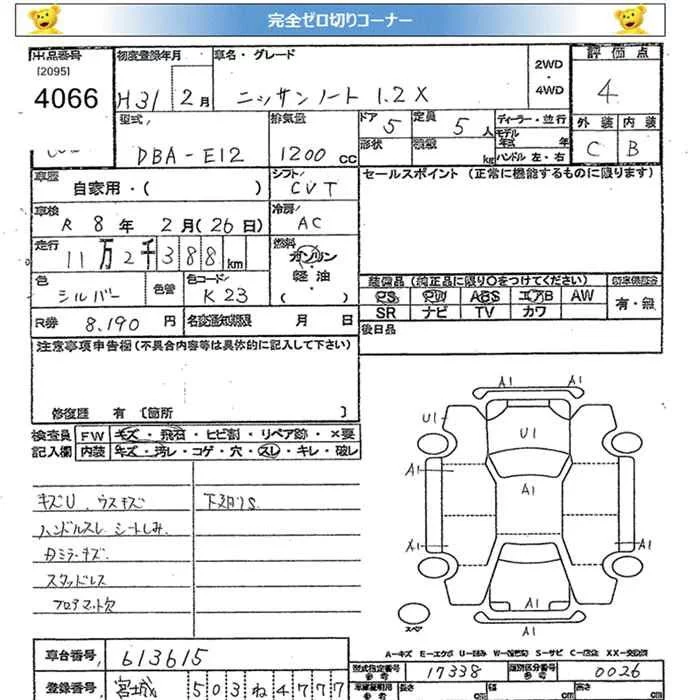 完全ゼロ切りコーナー
出品番号
[2095]
4066
初度登録年月
H31 2月
車名・グレード
ニッサンノート 1.2X
2WD
・
4WD
評価点
4
外装 内装
C B
型式
DBA-E12
排気量
1200 cc
ドア 5
定員 5 人
形状
積載 kg
ディーラー・並行
モデル
年式 年
ハンドル 左・右
車歴
自家用・( )
シフト
CVT
セールスポイント (正常に機能するものに限ります)
車検
R 8 年 2 月 (26 日)
冷房
AC
走行
11万2千388 km
燃料
ガソリン
・
軽油
・
( )
色
シルバー
色替
色コード
K23
装備品 (純正品に限り○をつけてください)
PS PW ABS エアB AW
SR ナビ TV カワ
有・無
R券 8,190 円
名変通知期限 月 日
後日品
注意事項申告欄 (不具合内容等は具体的に記入して下さい)
修復歴 有 [箇所 ]
検査員
記入欄
FW キズ・飛石・ヒビ割・リペア跡・×要
内装 キズ・汚レ・コゲ・穴・スレ・キレ・破レ
キズU、ウスキズ
ハンドルスレ シートしみ
スタッドレス
フロアマット欠
A1 A1
U1
U1
A1
A1
A1
A1
A1
スペア
A-キズ E-エクボ U-凹み W-補修跡 S-サビ C-腐食 XX-交換済
車台番号 613615
型式指定番号
参考
17338
類別区分番号
参考
0026
登録番号 宮城 503 ね 4777
長さ cm 幅 cm 高さ cm